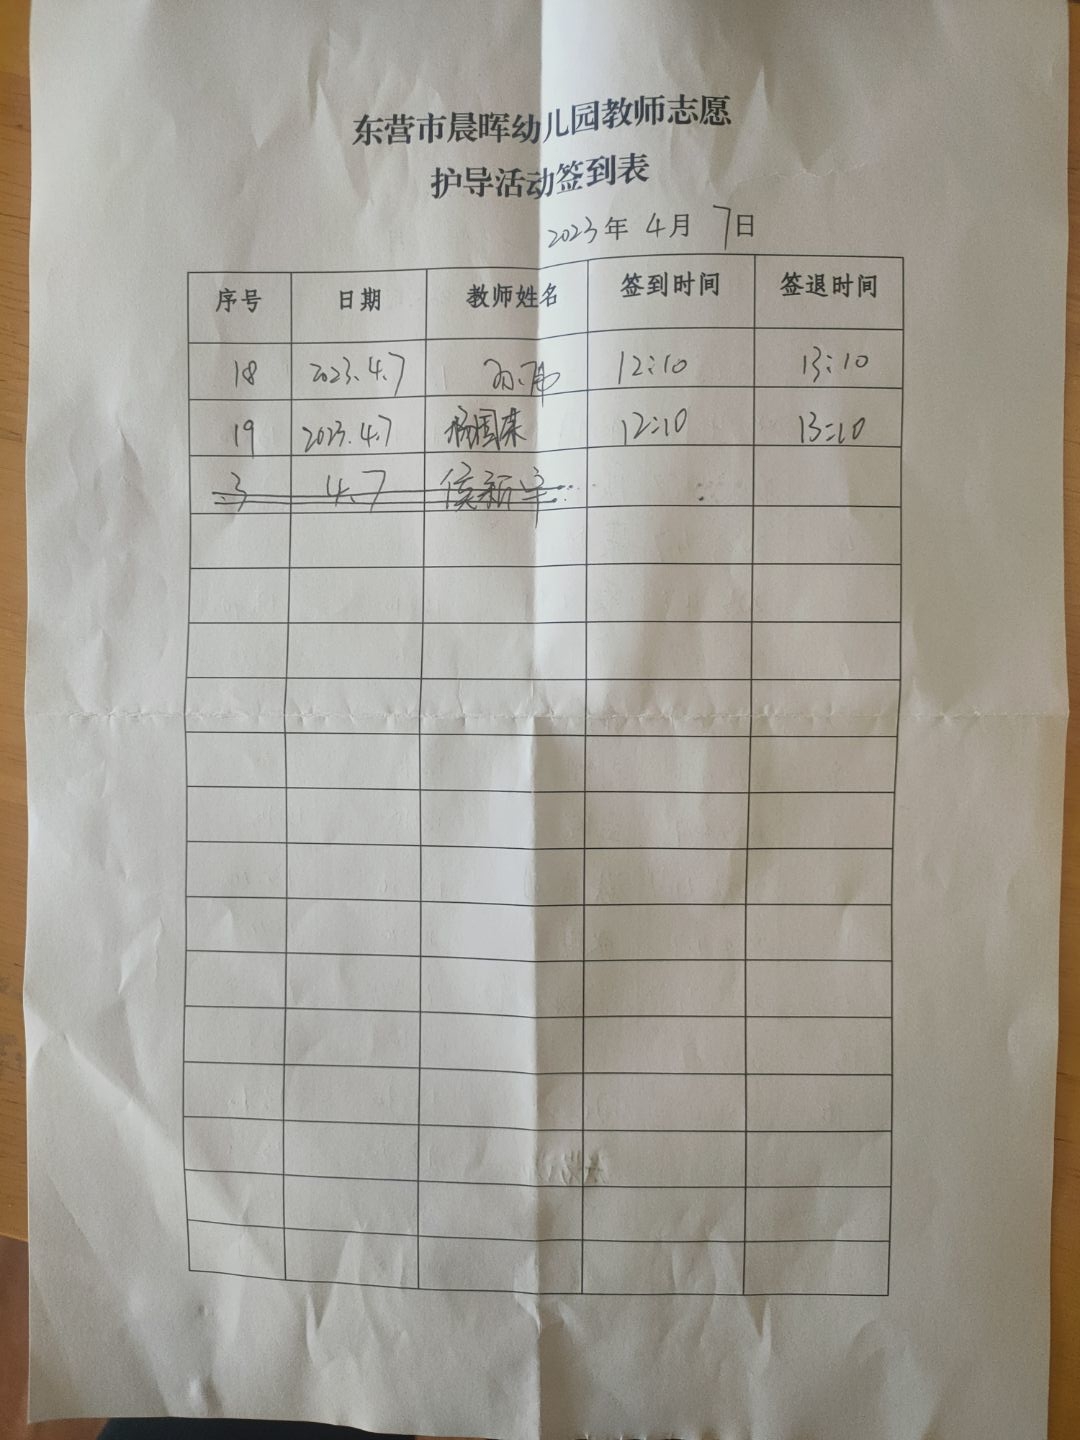 东营市晨晖幼儿园教师志愿
护导活动签到表
2023年 4月 7日
序号 日期 教师姓名 签到时间 签退时间
18 2023.4.7 12:10 13:10
19 2023.4.7 杨国荣 12:10 13:10
3 4.7 侯新宇